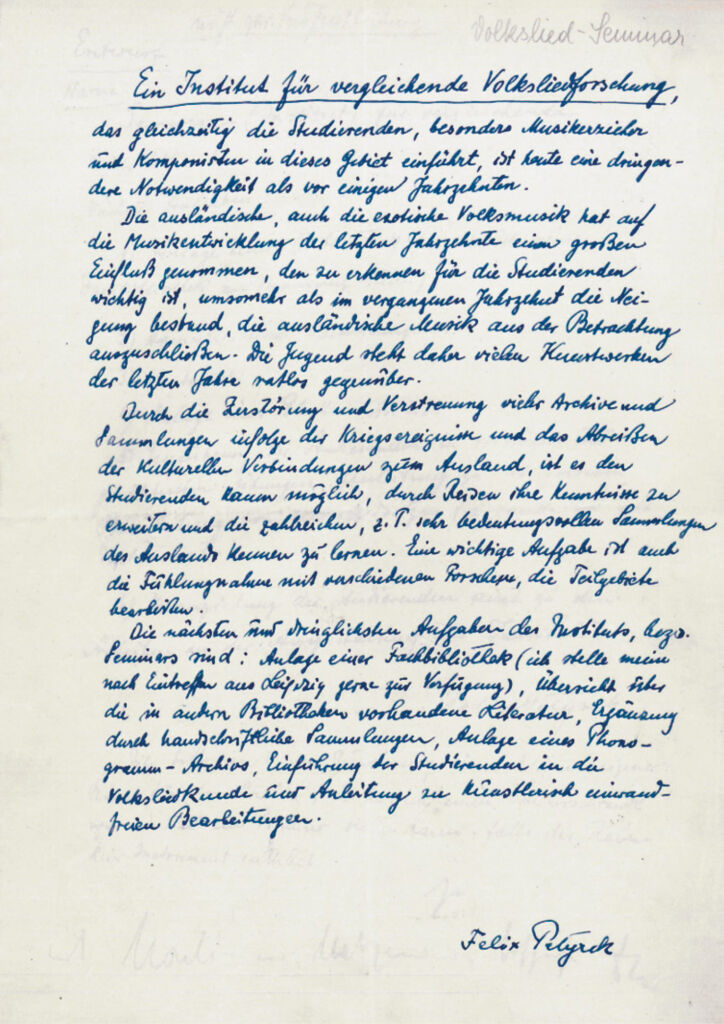 Volkslied-Seminar
Ein Institut für vergleichende Volksliedforschung,
das gleichzeitig die Studierenden, besonders Musikerzieher
und Komponisten in dieses Gebiet einführt, ist heute eine dringen-
dere Notwendigkeit als vor einigen Jahrzehnten.
Die ausländische, auch die exotische Volksmusik hat auf
die Musikentwicklung der letzten Jahrzehnte einen großen
Einfluß genommen, den zu erkennen für die Studierenden
wichtig ist, umsomehr als im vergangenen Jahrzehnt die Nei-
gung bestand, die ausländische Musik aus der Betrachtung
auszuschließen. Die Jugend steht daher vielen Kunstwerken
der letzten Jahre ratlos gegenüber.
Durch die Zerstörung und Verstreuung vieler Archive und
Sammlungen infolge der Kriegsereignisse und das Abreißen
der kulturellen Verbindungen zum Ausland, ist es den
Studierenden kaum möglich, durch Reisen ihre Kenntnisse zu
erweitern und die zahlreichen, z. T. sehr bedeutungsvollen Sammlungen
des Auslands kennen zu lernen. Eine wichtige Aufgabe ist auch
die Fühlungnahme mit verschiedenen Forschern, die Teilgebiete
bearbeiten.
Die nächsten und dringlichsten Aufgaben des Instituts, bezw.
Seminars sind: Anlage einer Fachbibliothek (ich stelle meine
nach Eintreffen aus Leipzig gerne zur Verfügung), Übersicht über
die in andern Bibliotheken vorhandene Literatur, Ergänzung
durch handschriftliche Sammlungen, Anlage eines Phono-
gramm-Archivs, Einführung der Studierenden in die
Volksliedkunde und Anleitung zu künstlerisch einwand-
freien Bearbeitungen.
Felix Petyrek